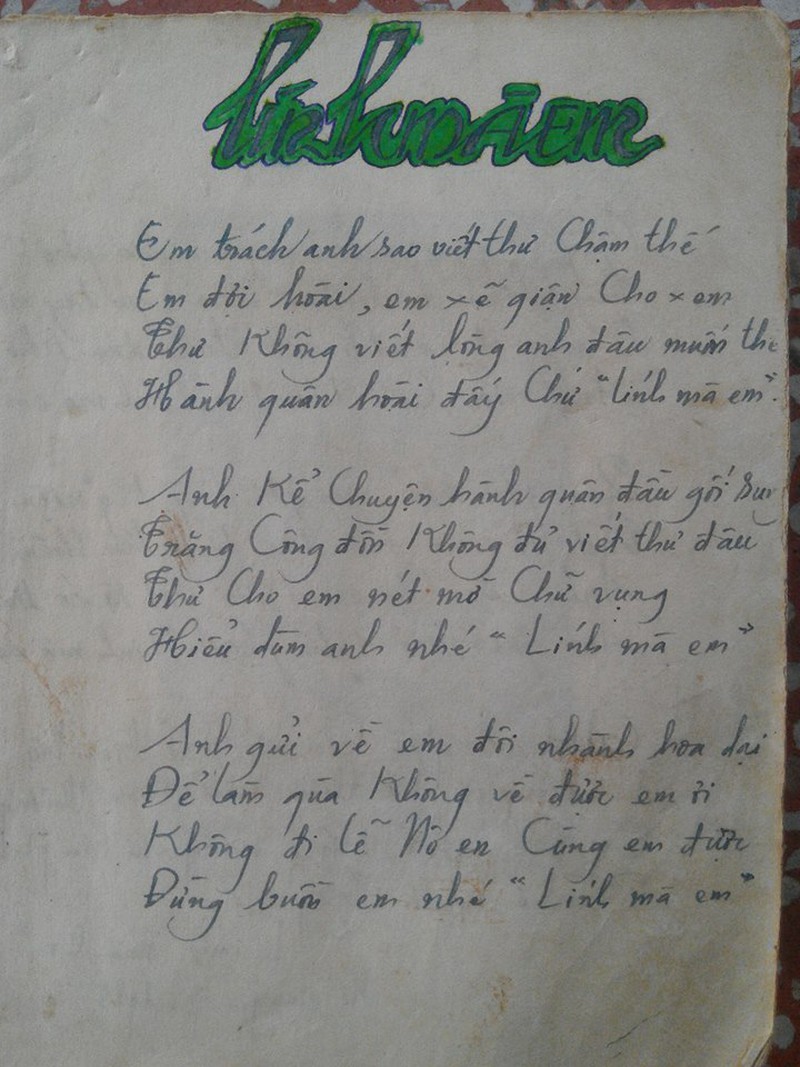 Lính mà Em
Em trách anh sao viết thư Chậm thế
Em đợi hoài, em xẽ giận Cho xem
Thư Không viết lòng anh đâu muốn thế
Hành quân hoài đấy Chứ "Lính mà em".
Anh Kể Chuyện hành quân đầu gối Sún
Trăng Công đồn Không đủ viết thư đâu
Thư Cho em nét mờ Chữ vụng
Hiểu dùm anh nhé "Lính mà em"
Anh gửi về em đôi nhành hoa dại
Để làm quà Không về được em ơi
Không đi lễ Nô en Cùng em được
Đừng buồn em nhé "Lính mà em"